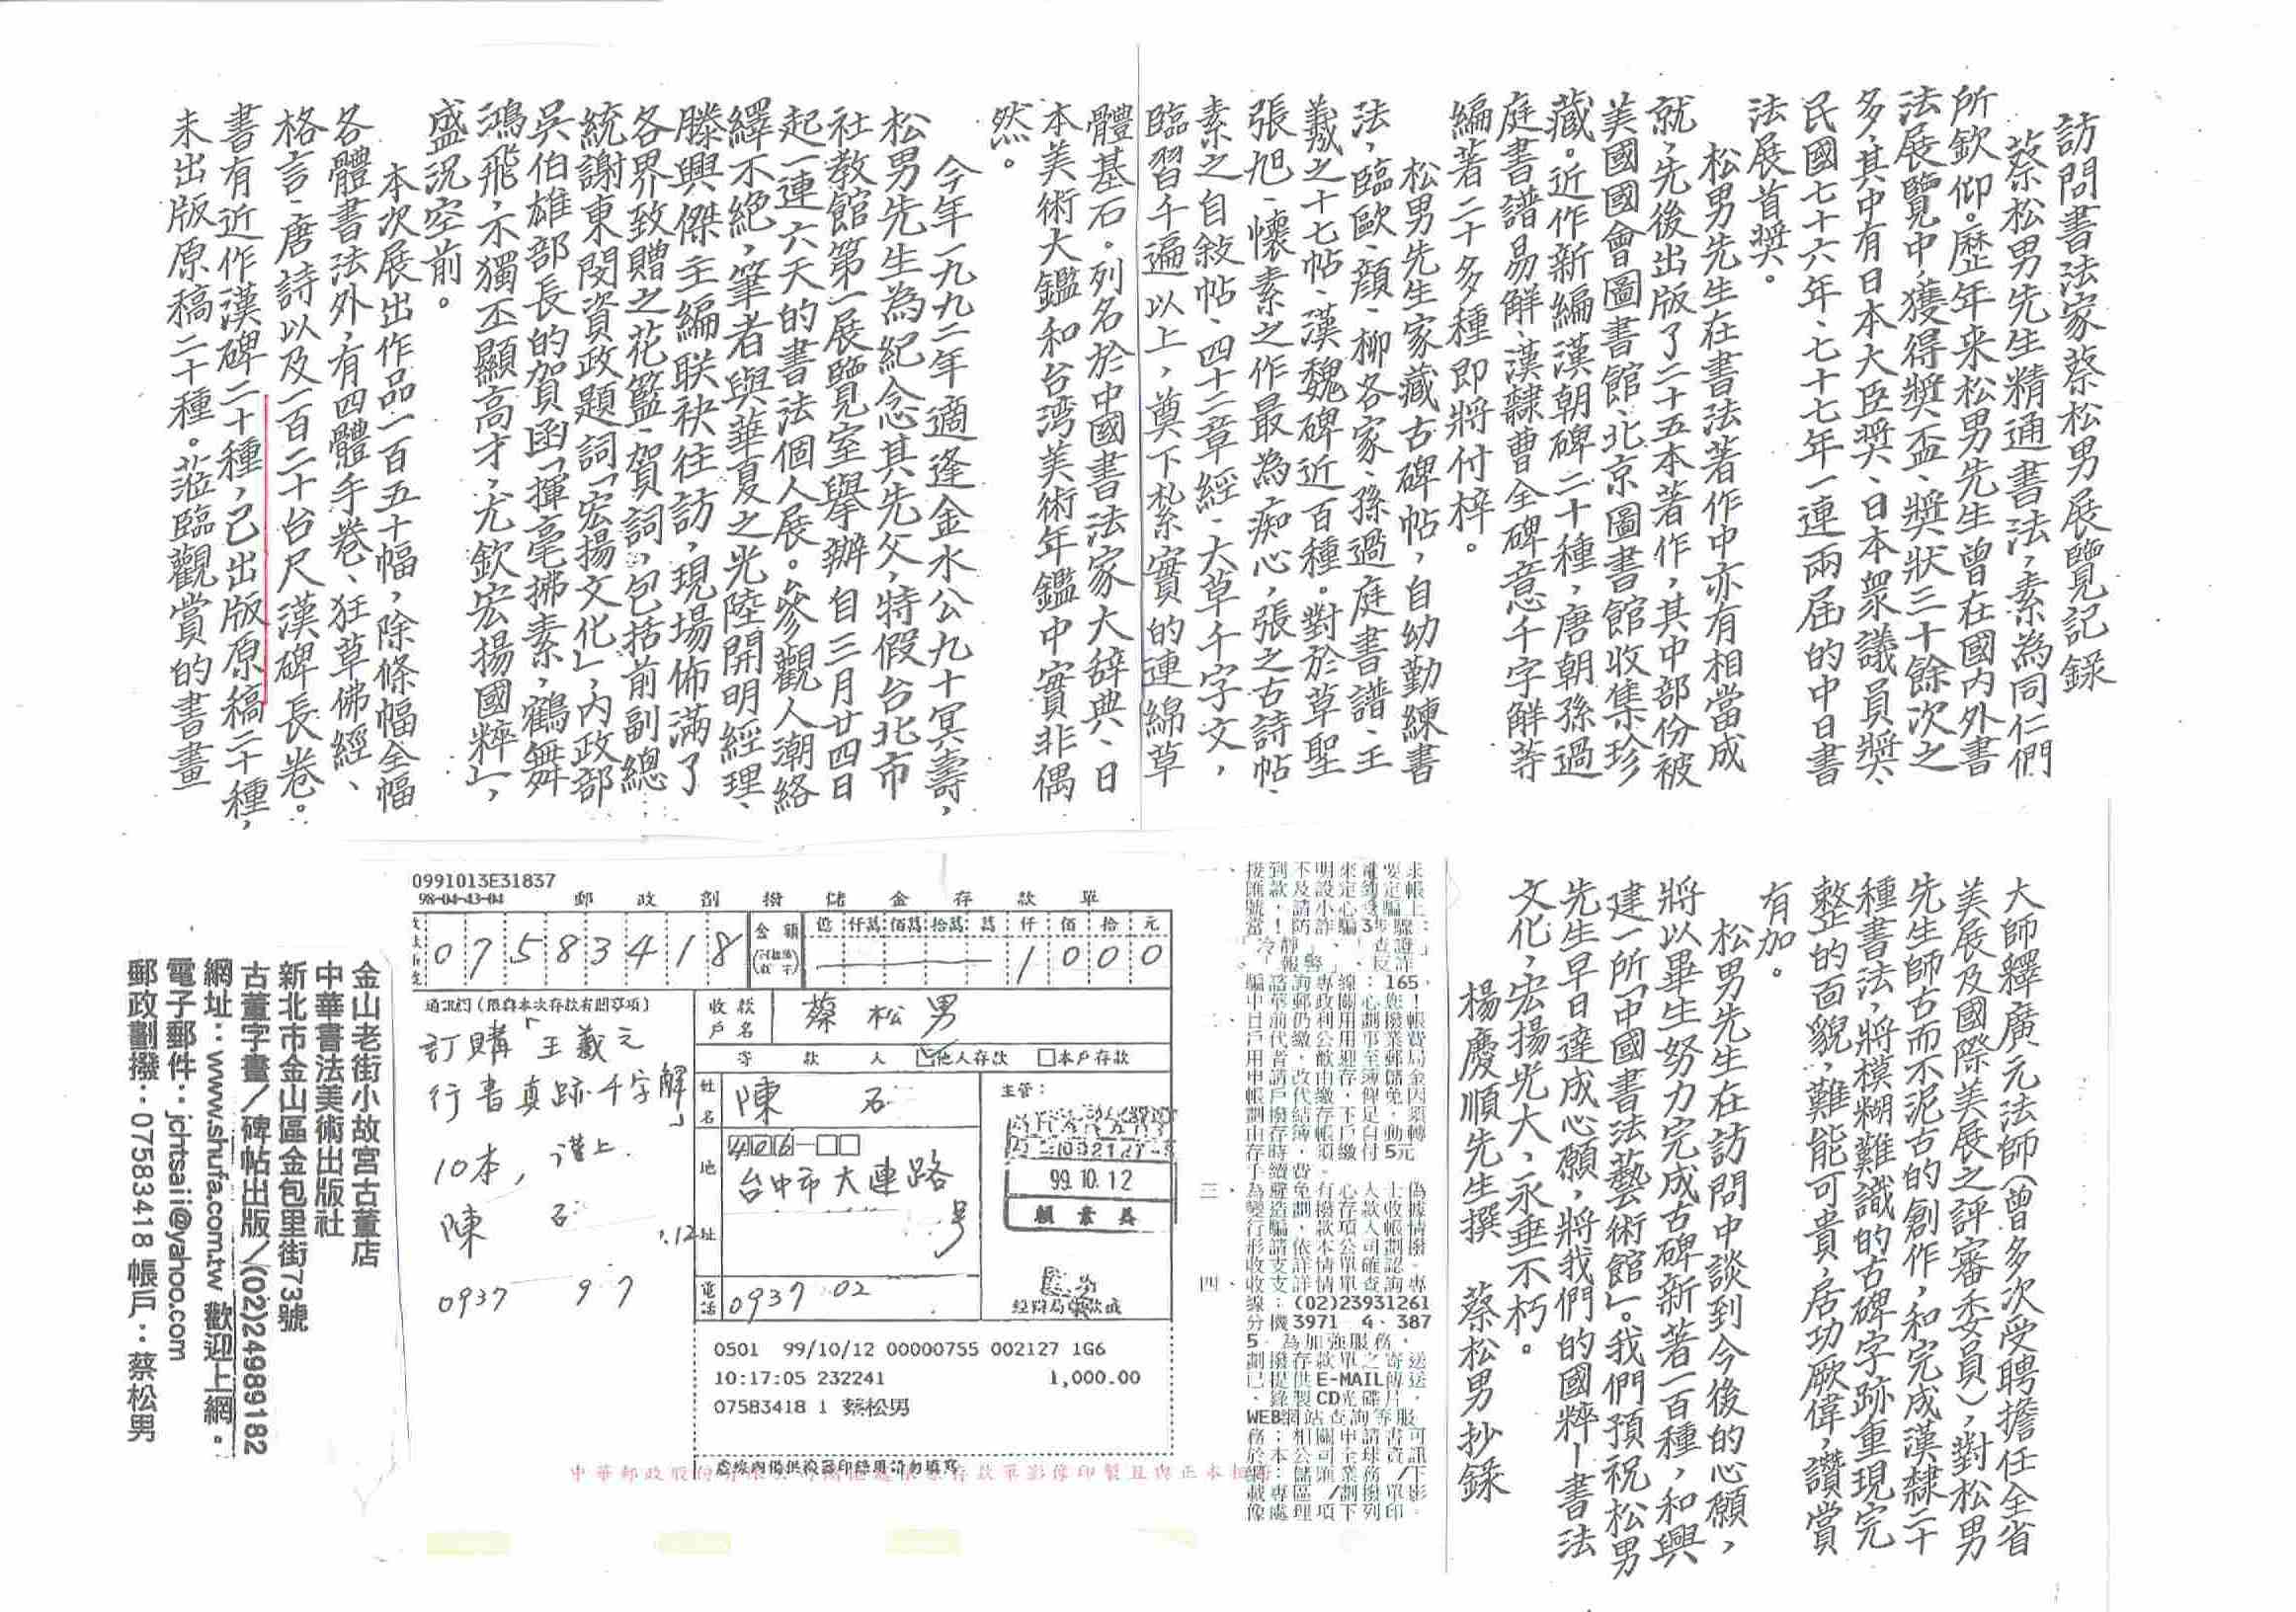 訪問書法家蔡松男展覽記錄
蔡松男先生精通書法，素為同仁們
所欽仰。歷年来松男先生曾在國内外書
法展覽中，獲得獎盃、獎狀三十餘次之
多，其中有日本大臣奬、日本衆議員奬、
民國七十六年、七十七年一連兩届的中日書
法展首奬。
松男先生在書法著作中亦有相當成
就，先後出版了二十五本著作，其中部份被
美國國會圖書館、北京圖書館收集珍
藏。近作新編漢朝碑二十種，唐朝孫過
庭書譜易解、漢隸曹全碑意千字解等
編著二十多種即將付梓。
松男先生家藏古碑帖，自幼勤練書
法，臨歐、顔、柳各家、孫過庭書譜、王
羲之十七帖、漢魏碑近百種。對於草聖
張旭、懷素之作最為痴心，張之古詩帖、
素之自敍帖、四十二章經、大草千字文，
臨習千遍以上，奠下紮實的連綿草
體基石。列名於中國書法家大辞典、日
本美術大鑑和台湾美術年鑑中實非偶
然。
今年一九九二年適逢金水公九十冥壽，
松男先生為紀念其先父，特假台北市
社教館第一展覽室舉辦自三月廿四日
起一連六天的書法個人展。參觀人潮絡
繹不絕，筆者與華夏之光陸開明經理、
滕興傑主編联袂往訪，現場佈滿了
各界致贈之花籃、賀詞，包括前副總
統謝東閔資政題詞「宏揚文化」，内政部
吳伯雄部長的賀函「揮毫拂素，鶴舞
鴻飛，不獨丕顯高才，尤欽宏揚國粹」，
盛況空前。
本次展出作品一百五十幅，除條幅全幅
各體書法外，有四體手卷、狂草佛經、
格言、唐詩以及一百二十台尺漢碑長卷。
書有近作漢碑二十種，己出版原稿二十種，
未出版原稿二十種。蒞臨觀賞的書畫
大師釋廣元法師（曾多次受聘擔任全省
美展及國際美展之評審委員），對松男
先生師古而不泥古的創作，和完成漢隸二十
種書法，將模糊難識的古碑字跡重現完
整的面貌，難能可貴，居功厥偉，讚賞
有加。
松男先生在訪問中談到今後的心願，
將以畢生努力完成古碑新著一百種，和興
建一所「中國書法藝術館」。我們預祝松男
先生早日達成心願，將我們的國粹—書法
文化，宏揚光大，永垂不朽。
楊慶順先生撰　蔡松男抄錄
0991013E31837
98-04-43-04 郵政劃撥儲金存款單
07583418
金額 億 仟萬 佰萬 拾萬 萬 仟 佰 拾 元
1000
通訊欄（限與本次存款有關事項）
訂購「王羲之
行書真跡千字解」
10本，謹上.
陳 石
0937 97
收款戶名 蔡松男
寄款人 ☑他人存款 □本戶存款
姓名 陳 石
主管：
地址 406-□□
台中市大連路
號
99.10.12
電話 0937 02
0501 99/10/12 00000755 002127 1G6
10:17:05 232241 1,000.00
07583418 1 蔡松男
虛線內備供機器印錄用請勿填寫
金山老街小故宮古董店
中華書法美術出版社
新北市金山區金包里街73號
古董字畫／碑帖出版／(02)24989182
網址：www.shufa.com.tw 歡迎上網。
電子郵件：jchtsaii@yahoo.com
郵政劃撥：07583418 帳戶：蔡松男